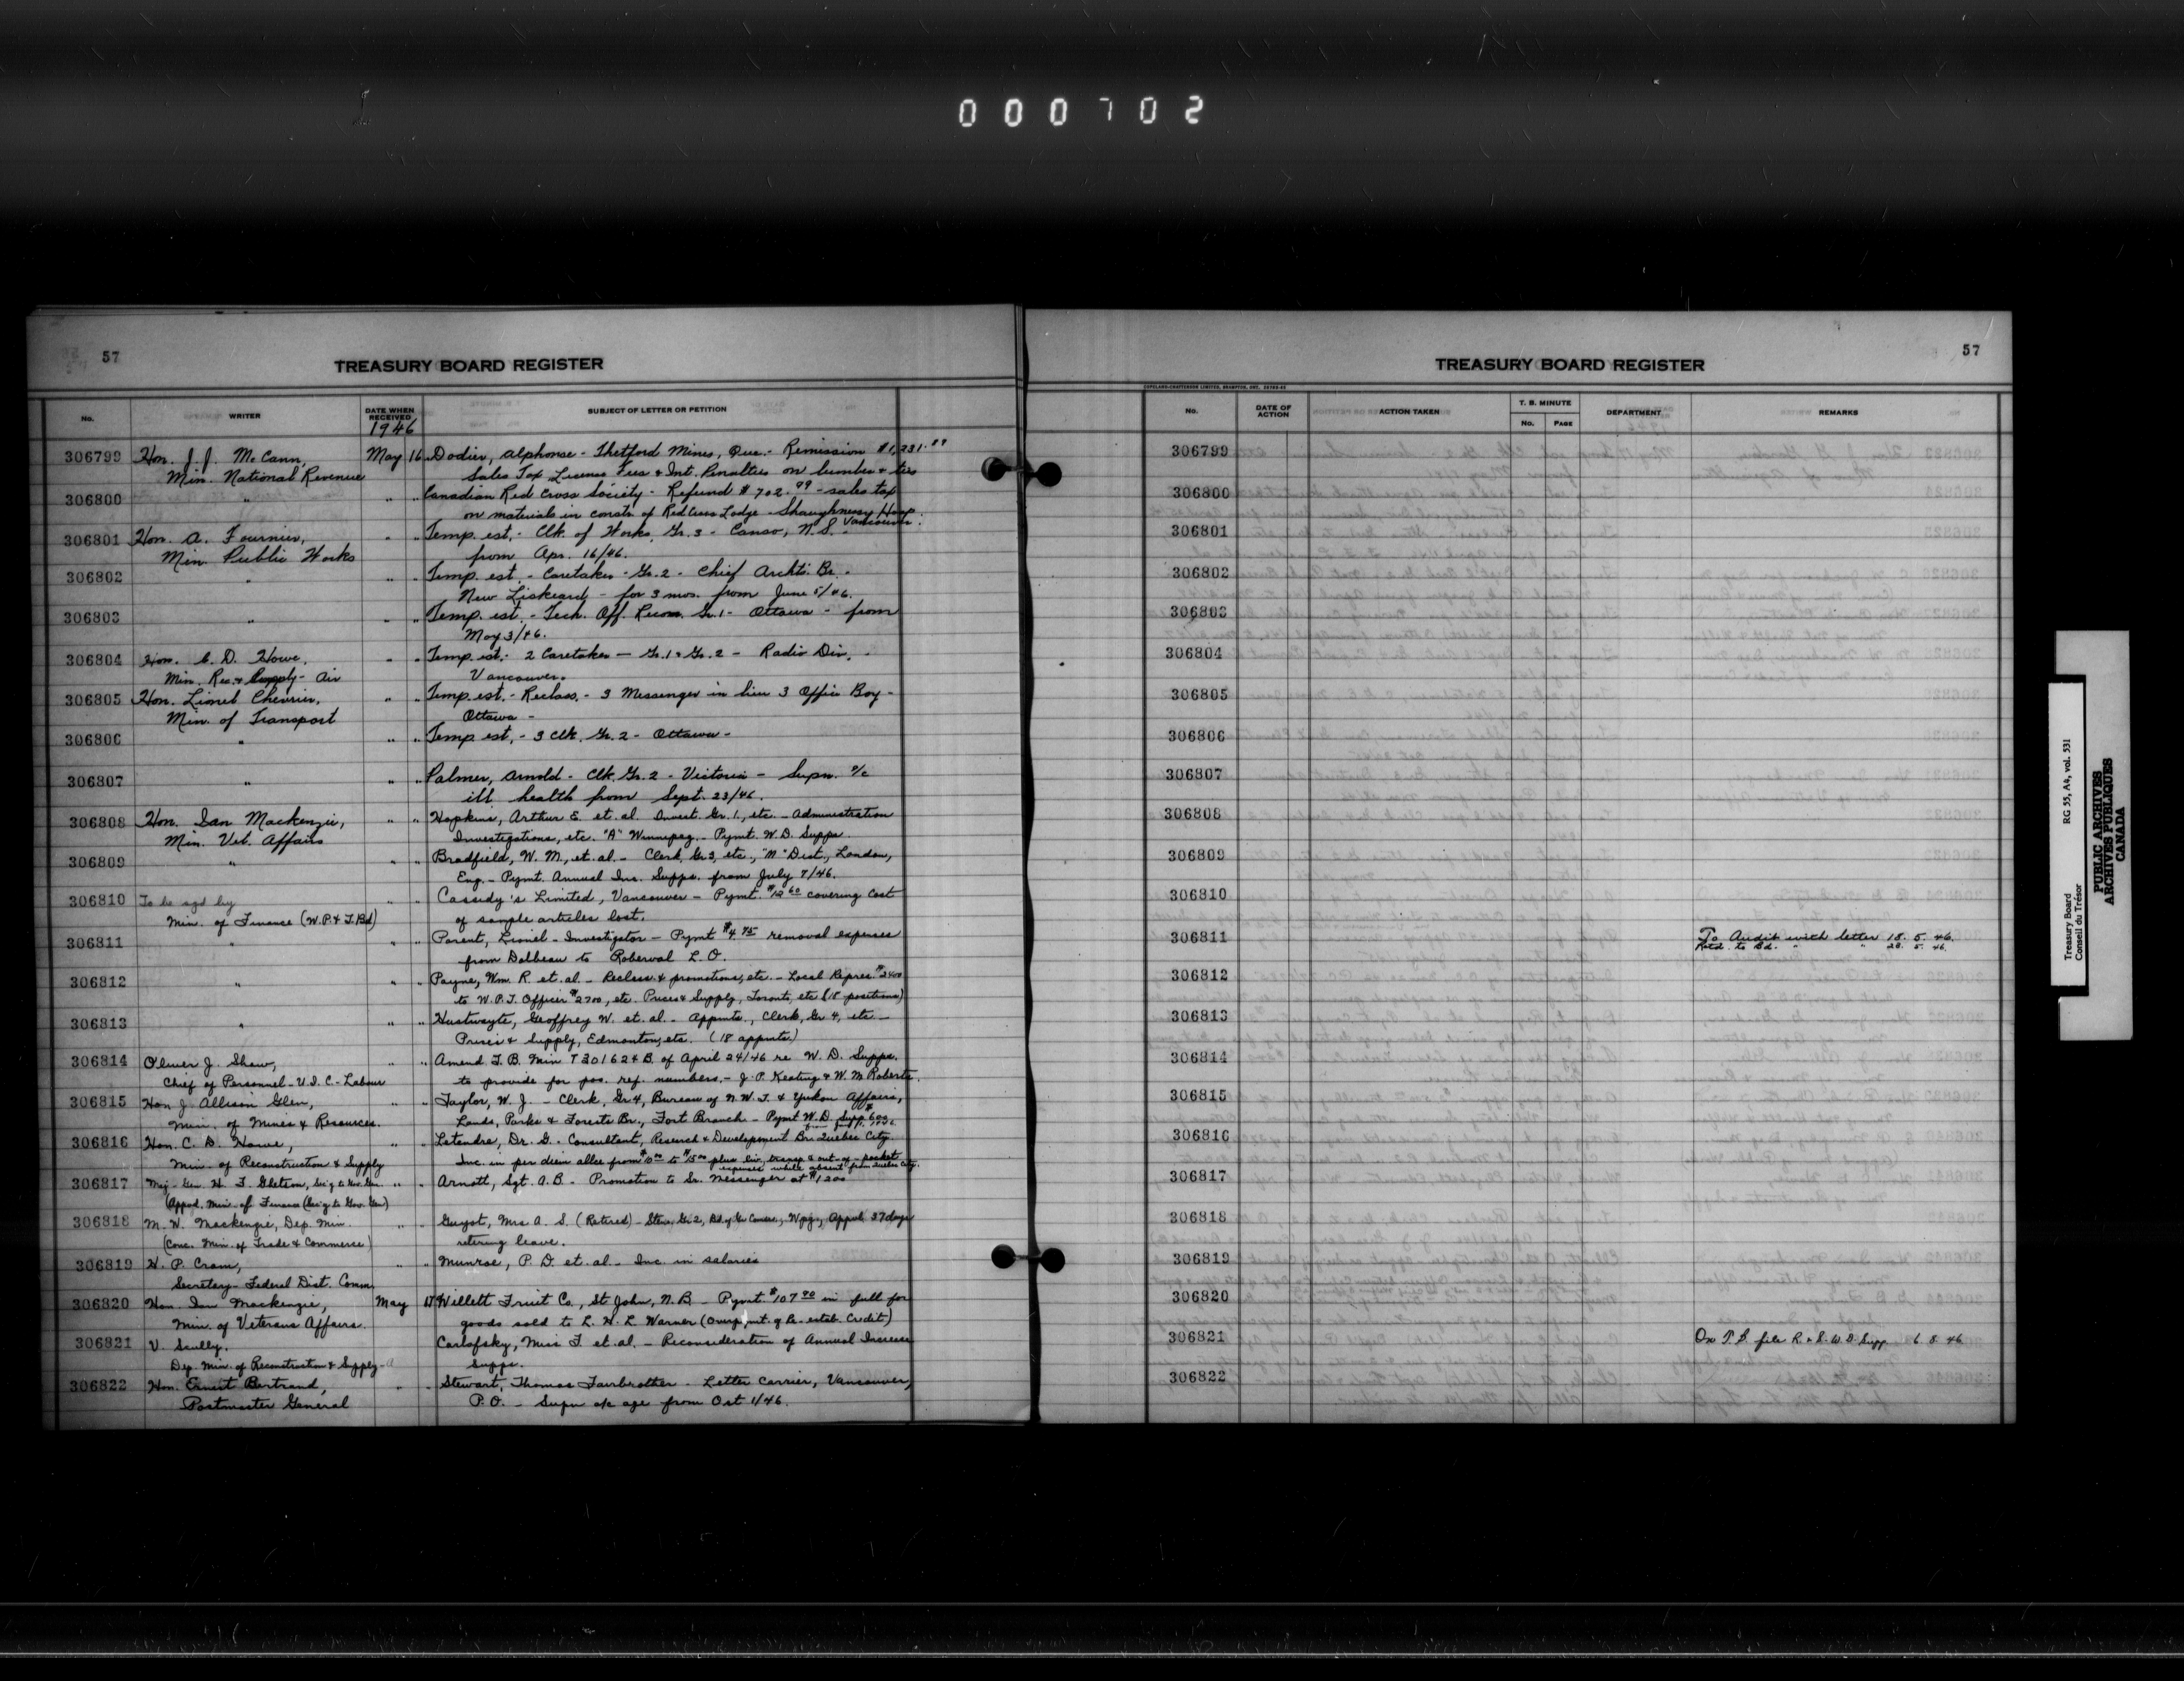 000702
57
TREASURY BOARD REGISTER
No. WRITER DATE WHEN RECEIVED SUBJECT OF LETTER OR PETITION
1946
306799 Hon. J. J. McCann, May 16 Dodier, Alphonse - Thetford Mines, Que. - Remission $1,231.89
Min. National Revenue Sales Tax License Fees & Int. Penalties on lumber & ties
306800 " " " Canadian Red Cross Society - Refund $702.99 - sales tax
on materials in constr. of Red Cross Lodge - Shaughnessy Hosp. Vancouver.
306801 Hon. A. Fournier, " " Temp. est. - Clk. of Works, Gr. 3 - Canso, N.S. -
Min. Public Works from Apr. 16/46.
306802 " " " Temp. est. - Caretaker - Gr. 2 - Chief Archts. Br. -
New Liskeard - for 3 mos. from June 5/46.
306803 " " " Temp. est. - Tech. Off. Gr. 1 - Ottawa - from
May 3/46.
306804 Hon. C. D. Howe, " " Temp. est. - 2 Caretaker - Gr. 1 & Gr. 2 - Radio Div. -
Min. Rec. & Supply - Air Vancouver.
306805 Hon. Lionel Chevrier, " " Temp. est. - Reclass. - 3 Messenger in lieu 3 Office Boy -
Min. of Transport Ottawa -
306806 " " " Temp. est. - 3 Clk. Gr. 2 - Ottawa -
306807 " " " Palmer, Arnold - Clk. Gr. 2 - Victoria - Supn. a/c
ill health from Sept. 23/46.
306808 Hon. Ian Mackenzie, " " Hopkins, Arthur E. et. al. Invest. Gr. 1, etc. - Administration
Min. Vet. Affairs Investigations, etc. "A" Winnipeg - Pymt. W.D. Supps.
306809 " " " Bradfield, W. M., et. al. - Clerk, Gr 3, etc., "N" Dist., London,
Eng. - Pymt. Annual Inc. Supps. from July 7/46.
306810 To be sgd by " " Cassidy's Limited, Vancouver - Pymt. $12.60 covering cost
Min. of Finance (W.P. & T. Bd) of sample articles lost.
306811 " " " Parent, Lionel - Investigator - Pymt $4.75 removal expenses
from Dolbeau to Roberval L.O.
306812 " " " Payne, Wm. R. et. al. - Reclass. & promotions, etc. - Local Repres. $2400
to W.P.T. Officer $2700, etc. Prices & Supply, Toronto, etc (18 positions)
306813 " " " Hustwayte, Geoffrey W. et. al. - Appmts., Clerk, Gr 4, etc. -
Prices & Supply, Edmonton, etc. (18 appmts.)
306814 Oliver J. Shaw, " " Amend T.B. Min T 301624 B. of April 24/46 re W.D. Supps.
Chief of Personnel - U.I.C. - Labour to provide for pos. ref. numbers. - J.P. Keating & W. M. Roberts.
306815 Hon J Allison Glen, " " Taylor, W. J. - Clerk, Gr 4, Bureau of N.W.T. & Yukon Affairs,
Min. of Mines & Resources. Lands, Parks & Forests Br., Fort Branch - Pymt W.D. Supp $600
306816 Hon. C. D. Howe, " " Letendre, Dr. G. - Consultant, Research & Development Br. Quebec City.
Min. of Reconstruction & Supply Inc. in per diem allce from $10.00 to $15.00 plus liv. transp & out-of-pocket
expenses while absent from Quebec City.
306817 Maj - Gen. H. F. Letson, Sec'y to Gov. Gen. " " Arnott, Sgt. A. B. - Promotion to Sr. Messenger at $1200
(Appvd. Min. of Finance (Sec'y to Gov. Gen)
306818 M. W. Mackenzie, Dep. Min. " " Guyot, Mrs A. S. (Retired) - Steno, Gr 2, Bd of Gr. Comrs., Wpg., Appvl. 37 days
(Conc. Min. of Trade & Commerce) retiring leave.
306819 H. P. Cram, " " Munroe, P. D. et. al. - Inc. in salaries
Secretary - Federal Dist. Comm.
306820 Hon. Ian Mackenzie, May 17 Willett Fruit Co., St John, N.B. - Pymt. $107.90 in full for
Min. of Veterans Affairs. goods sold to L. H. L. Warner (Overpymt. of Re-estab. Credit)
306821 V. Scully. Carlofsky, Miss F. et. al. - Reconsideration of Annual Increase
Dep. Min. of Reconstruction & Supply - a Supps.
306822 Hon. Ernest Bertrand, " " Stewart, Thomas Fairbrother - Letter Carrier, Vancouver,
Postmaster General P.O. - Supn a/c age from Oct 1/46.
57
TREASURY BOARD REGISTER
COPELAND-CHATTERSON LIMITED, BRAMPTON, ONT.
No. DATE OF ACTION ACTION TAKEN T. B. MINUTE DEPARTMENT REMARKS
No. PAGE
306799
306800
306801
306802
306803
306804
306805
306806
306807
306808
306809
306810
306811 To Audit with letter 18. 5. 46.
Retd. to Bd. " 28. 5. 46.
306812
306813
306814
306815
306816
306817
306818
306819
306820
306821 On T.B. file R. & S. W.D. Supp 6 8 46
306822
Treasury Board RG 55, A4, vol. 531
Conseil du Trésor
PUBLIC ARCHIVES
ARCHIVES PUBLIQUES
CANADA